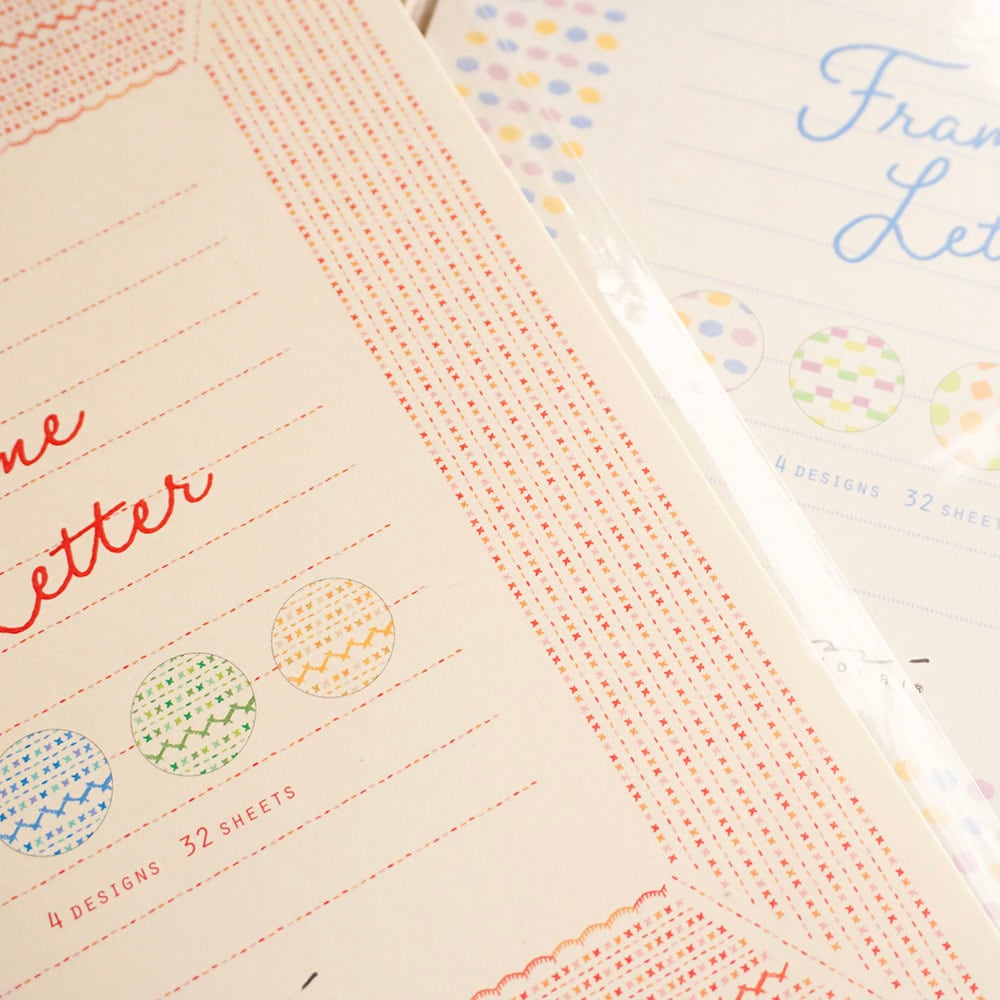 me
Letter
4 DESIGNS 32 SHEETS
Fram
Let
4 DESIGNS 32 SHEETS